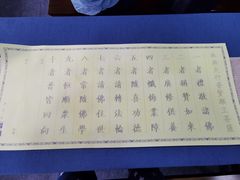 南無大行普賢願王菩薩
一者禮敬諸佛
二者稱讚如來
三者廣修供養
四者懺悔業障
五者隨喜功德
六者請轉法輪
七者請佛住世
八者常隨佛學
九者恆順眾生
十者普皆回向